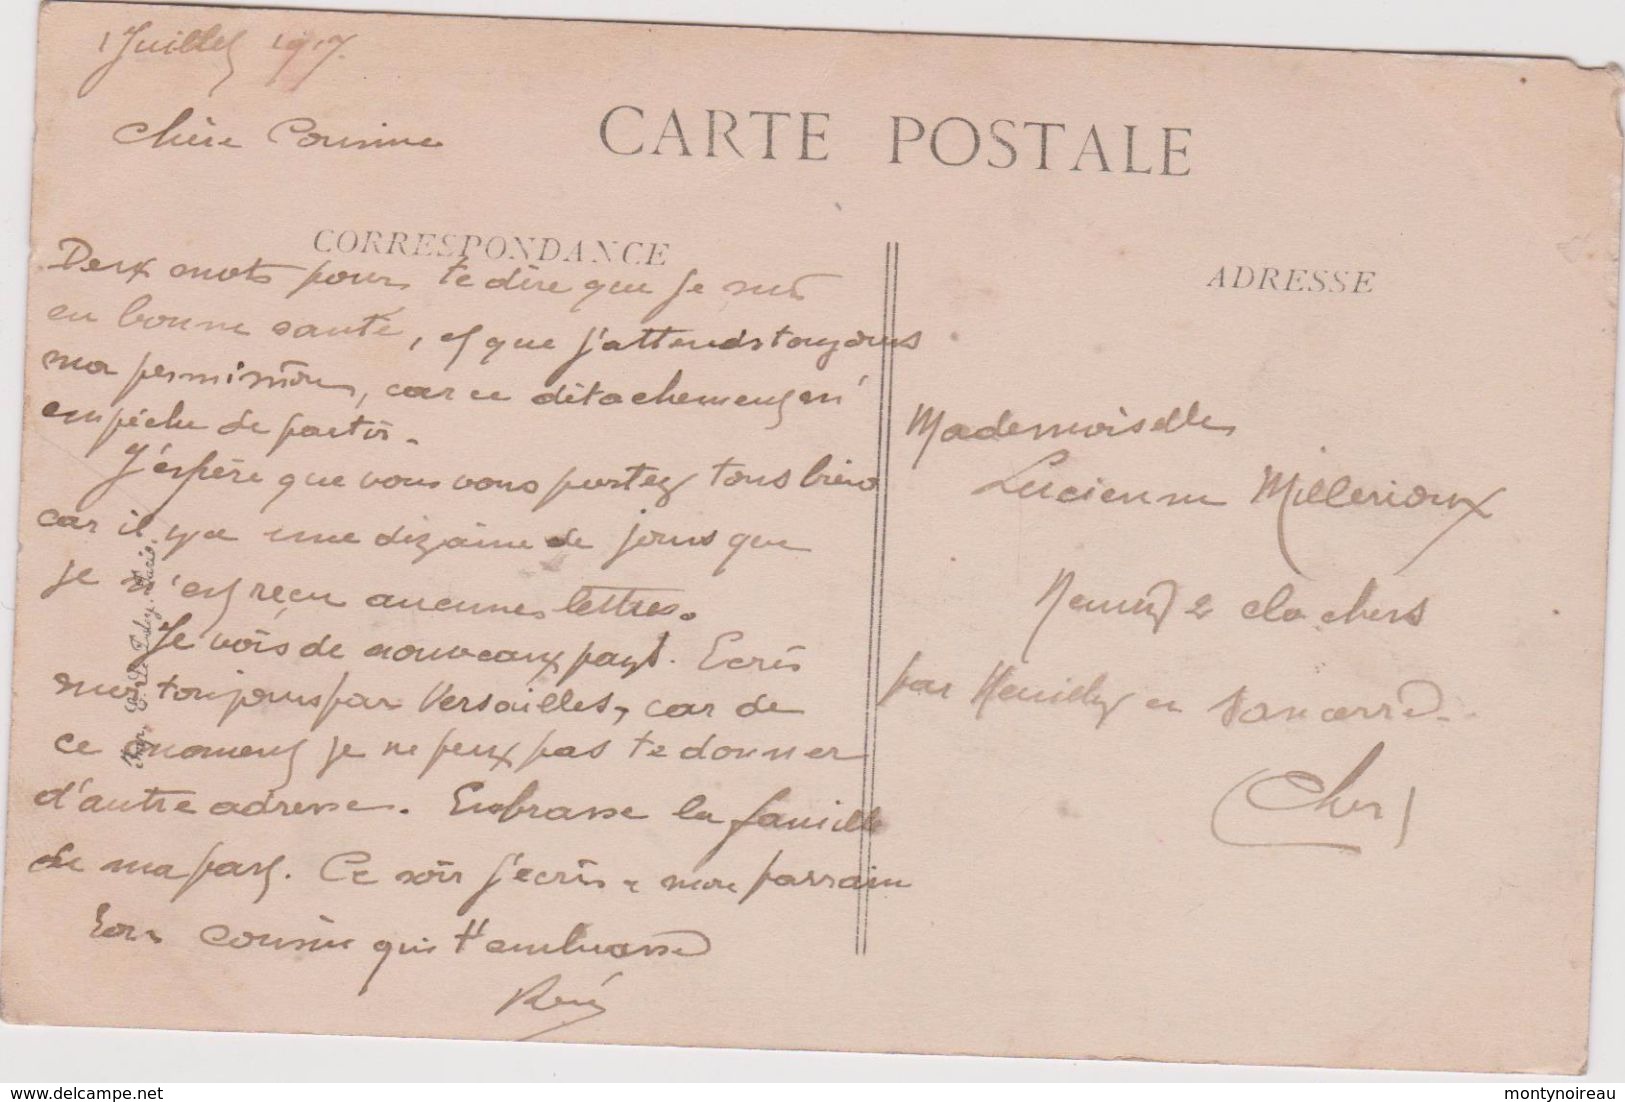 1 Juillet 1917.
Chère Cousine
CARTE POSTALE
CORRESPONDANCE
Deux mots pour te dire que je suis
en bonne santé, et que j'attends toujours
ma permission, car ce détachement m'
empêche de partir.
J'espère que vous vous portez tous bien
car il y a une dizaine de jours que
je n'est reçu aucunes lettres.
Je vois de nouveaux pays. Ecris
moi toujours par Versailles, car de
ce moment je ne peux pas te donner
d'autre adresse. Embrasse la famille
de ma part. Ce soir j'écris a mon parrain
Ton cousin qui t'embrasse
René
Imp. E. Le Deley, Paris
ADRESSE
Mademoiselle
Lucienne Millerioux
Neuvy 2 clochers
par Neuilly en Sancerre
(Cher)
montynoireau